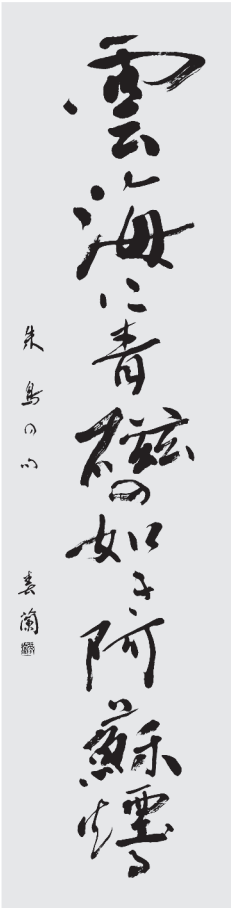 雲海に青磁の如き阿蘇煙る
朱鳥の句 春蘭